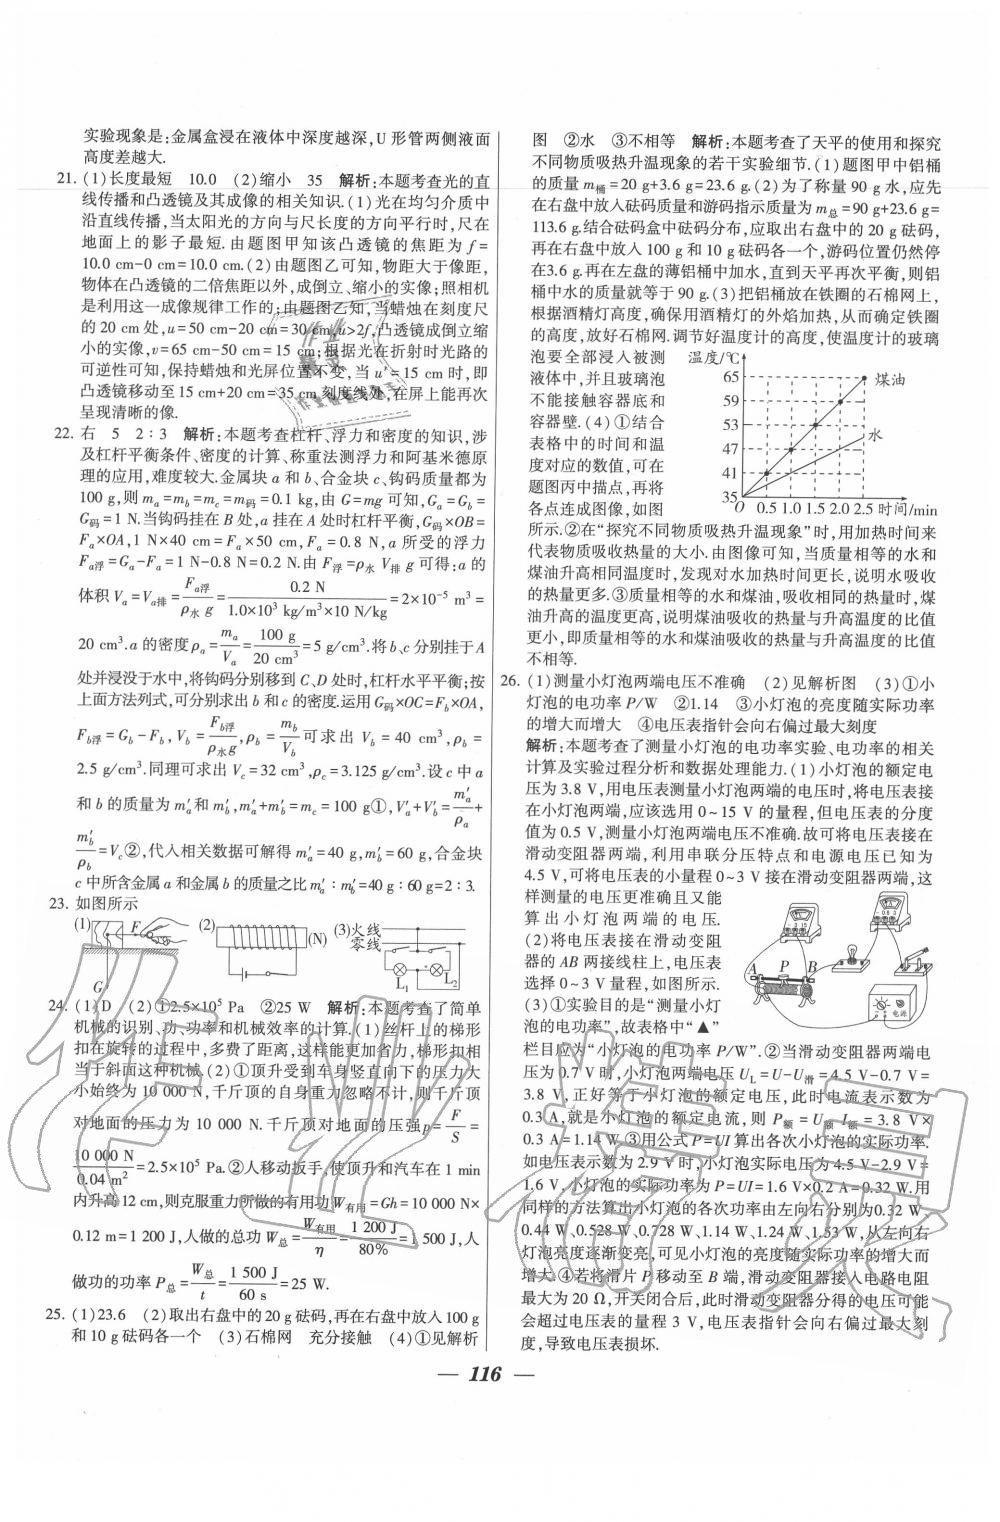 实验现象是:金属盒浸在液体中深度越深,U 形管两侧液面
高度差越大.
21. (1)长度最短 10.0 (2)缩小 35 解析:本题考查光的直
线传播和凸透镜及其成像的相关知识.(1)光在均匀介质中
沿直线传播,当太阳光的方向与尺长度的方向平行时,尺在
地面上的影子最短.由题图甲知该凸透镜的焦距为 f=
10.0 cm-0 cm=10.0 cm.(2)由题图乙可知,物距大于像距,
物体在凸透镜的二倍焦距以外,成倒立、缩小的实像;照相机
是利用这一成像规律工作的;由题图乙知,当蜡烛在刻度尺
的 20 cm 处,u=50 cm-20 cm=30 cm,u>2f,凸透镜成倒立缩
小的实像,v=65 cm-50 cm=15 cm;根据光在折射时光路的
可逆性可知,保持蜡烛和光屏位置不变,当 u'=15 cm 时,即
凸透镜移动至 15 cm+20 cm=35 cm 刻度线处,在屏上能再次
呈现清晰的像.
22. 右 5 2∶3 解析:本题考查杠杆、浮力和密度的知识,涉
及杠杆平衡条件、密度的计算、称重法测浮力和阿基米德原
理的应用,难度较大.金属块 a 和 b、合金块 c、钩码质量都为
100 g,则 ma=mb=mc=m码=0.1 kg,由 G=mg 可知,Ga=Gb=
G码=1 N.当钩码挂在 B 处,a 挂在 A 处时杠杆平衡,G码×OB=
Fa×OA,1 N×40 cm=Fa×50 cm,Fa=0.8 N,a 所受的浮力
Fa浮=Ga-Fa=1 N-0.8 N=0.2 N.由 F浮=ρ水 V排 g 可得:a 的
体积 Va=Va排=Fa浮/ρ水 g=0.2 N/1.0×10³ kg/m³×10 N/kg=2×10⁻⁵ m³=
20 cm³.a 的密度 ρa=ma/Va=100 g/20 cm³=5 g/cm³.将 b、c 分别挂于 A
处并浸没于水中,将钩码分别移到 C、D 处时,杠杆水平平衡;按
上面方法列式,可分别求出 b 和 c 的密度.运用 G码×OC=Fb×OA,
Fb浮=Gb-Fb,Vb=Fb浮/ρ水g,ρb=mb/Vb可求出 Vb=40 cm³,ρb=
2.5 g/cm³.同理可求出 Vc=32 cm³,ρc=3.125 g/cm³.设 c 中 a
和 b 的质量为 m'a和 m'b,m'a+m'b=mc=100 g①,V'a+V'b=m'a/ρa+
m'b/ρb=Vc②,代入相关数据可解得 m'a=40 g,m'b=60 g,合金块
c 中所含金属 a 和金属 b 的质量之比 m'a∶m'b=40 g∶60 g=2∶3.
23. 如图所示
(1) F G (2) (N) (3)火线 零线 L1 L2
24. (1)D (2)①2.5×10⁵ Pa ②25 W 解析:本题考查了简单
机械的识别、功、功率和机械效率的计算.(1)丝杆上的梯形
扣在旋转的过程中,多费了距离,这样能更加省力,梯形扣相
当于斜面这种机械.(2)①顶升受到车身竖直向下的压力大
小始终为 10 000 N,千斤顶的自身重力忽略不计,则千斤顶
对地面的压力为 10 000 N.千斤顶对地面的压强p=F/S=
10 000 N/0.04 m²=2.5×10⁵ Pa.②人移动扳手,使顶升和汽车在 1 min
内升高 12 cm,则克服重力所做的有用功 W有用=Gh=10 000 N×
0.12 m=1 200 J,人做的总功 W总=W有用/η=1 200 J/80%=1 500 J,人
做功的功率 P总=W总/t=1 500 J/60 s=25 W.
25. (1)23.6 (2)取出右盘中的 20 g 砝码,再在右盘中放入 100 g
和 10 g 砝码各一个 (3)石棉网 充分接触 (4)①见解析
图 ②水 ③不相等 解析:本题考查了天平的使用和探究
不同物质吸热升温现象的若干实验细节.(1)题图甲中铝桶
的质量 m桶=20 g+3.6 g=23.6 g.(2)为了称量 90 g 水,应先
在右盘中放入砝码质量和游码指示质量为 m总=90 g+23.6 g=
113.6 g.结合砝码盒中砝码分布,应取出右盘中的 20 g 砝码,
再在右盘中放入 100 g 和 10 g 砝码各一个,游码位置仍然停
在3.6 g.再在左盘的薄铝桶中加水,直到天平再次平衡,则铝
桶中水的质量就等于 90 g.(3)把铝桶放在铁圈的石棉网上,
根据酒精灯高度,确保用酒精灯的外焰加热,从而确定铁圈
的高度,放好石棉网.调节好温度计的高度,使温度计的玻璃
泡要全部浸入被测
液体中,并且玻璃泡
不能接触容器底和
容器壁.(4)①结合
表格中的时间和温
度对应的数值,可在
题图丙中描点,再将
各点连成图像,如图
温度/℃
65
59
53
47
41
35
煤油
水
O 0.5 1.0 1.5 2.0 2.5 时间/min
所示.②在“探究不同物质吸热升温现象”时,用加热时间来
代表物质吸收热量的大小.由图像可知,当质量相等的水和
煤油升高相同温度时,发现对水加热时间更长,说明水吸收
的热量更多.③质量相等的水和煤油,吸收相同的热量时,煤
油升高的温度更高,说明煤油吸收的热量与升高温度的比值
更小,即质量相等的水和煤油吸收的热量与升高温度的比值
不相等.
26. (1)测量小灯泡两端电压不准确 (2)见解析图 (3)①小
灯泡的电功率 P/W ②1.14 ③小灯泡的亮度随实际功率
的增大而增大 ④电压表指针会向右偏过最大刻度
解析:本题考查了测量小灯泡的电功率实验、电功率的相关
计算及实验过程分析和数据处理能力.(1)小灯泡的额定电
压为 3.8 V,用电压表测量小灯泡两端的电压时,将电压表接
在小灯泡两端,应该选用 0~15 V 的量程,但电压表的分度
值为 0.5 V,测量小灯泡两端电压不准确.故可将电压表接在
滑动变阻器两端,利用串联分压特点和电源电压已知为
4.5 V,可将电压表的小量程 0~3 V 接在滑动变阻器两端,这
样测量的电压更准确且又能
算出小灯泡两端的电压.
(2)将电压表接在滑动变阻
器的 AB 两接线柱上,电压表
选择 0~3 V 量程,如图所示.
(3)①实验目的是“测量小灯
泡的电功率”,故表格中“▲”
A P B
电源
栏目应为“小灯泡的电功率 P/W”.②当滑动变阻器两端电
压为 0.7 V 时,小灯泡两端电压 UL=U-U滑=4.5 V-0.7 V=
3.8 V,正好等于小灯泡的额定电压,此时电流表示数为
0.3 A,就是小灯泡的额定电流,则 P额=U额 I额=3.8 V×
0.3 A=1.14 W.③用公式 P=UI 算出各次小灯泡的实际功率.
如电压表示数为 2.9 V 时,小灯泡实际电压为 4.5 V-2.9 V=
1.6 V,小灯泡的实际功率为 P=UI=1.6 V×0.2 A=0.32 W.用
同样的方法算出小灯泡的各次功率由左向右分别为0.32 W、
0.44 W、0.528 W、0.728 W、1.14 W、1.24 W、1.53 W,从左向右
灯泡亮度逐渐变亮,可见小灯泡的亮度随实际功率的增大而
增大.④若将滑片 P 移动至 B 端,滑动变阻器接入电路电阻
最大为 20 Ω,开关闭合后,此时滑动变阻器分得的电压可能
会超过电压表的量程 3 V,电压表指针会向右偏过最大刻
度,导致电压表损坏.
— 116 —